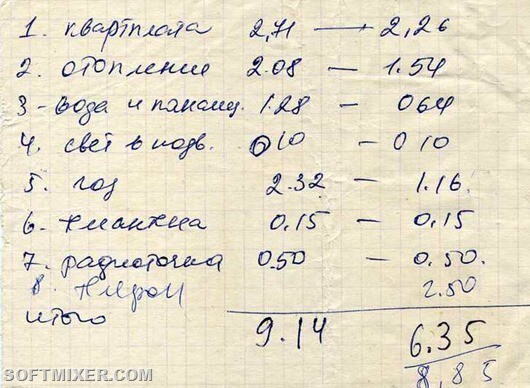 1. квартплата 2,71 — 2,26
2. отопление 2.08 — 1.54
3 - вода и канализ. 1.28 — 064
4. свет в подв. 010 — 010
5. газ 2.32 — 1.16.
6. 0.15 — 0.15
7. радиоточка 0.50 — 0.50.
8. 2.50
итого 9.14 6.35
8,85
SOFTMIXER.COM